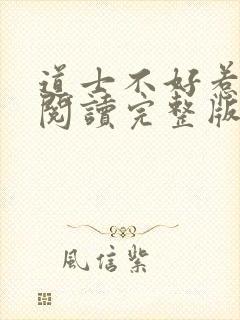 道士不好惹
閱讀完整版
風信紫